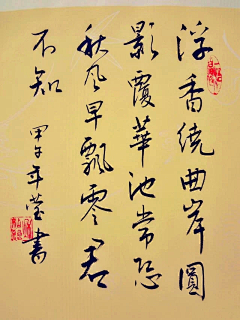 浮香绕曲岸圆
影覆華池常恐
秋风早飘零君
不知 甲午年莹書